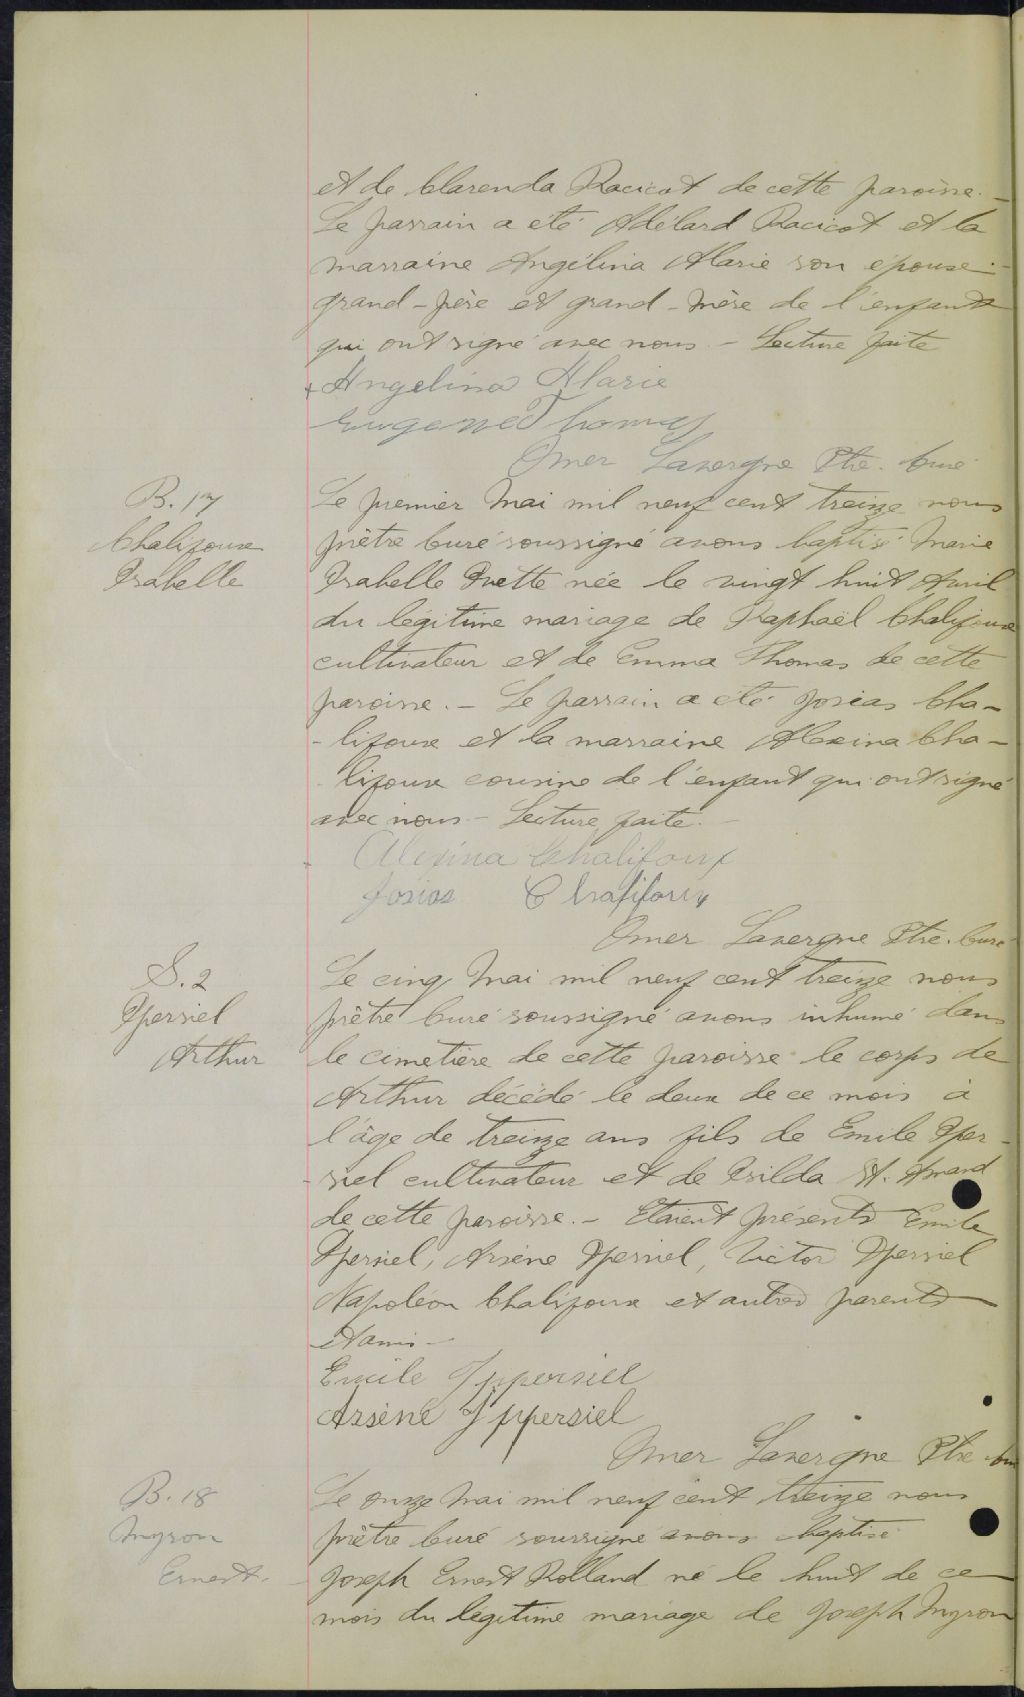 et de Clarenda Racicot de cette paroisse. –
Le parrain a été Adélard Racicot et la
marraine Angélina Alarie son épouse –
grand-père et grand-mère de l'enfant
qui ont signé avec nous – Lecture faite
+ Angelina Alarie
Eugene Thomas
Omer Lavergne Ptre. Curé
B. 17
Chalifoux
Isabelle
Le premier Mai mil neuf cent treize nous
prêtre Curé soussigné avons baptisé Marie
Isabelle Yvette née le vingt huit Avril
du légitime mariage de Raphaël Chalifoux
cultivateur et de Emma Thomas de cette
paroisse. – Le parrain a été Josias Cha-
-lifoux et la marraine Alexina Cha-
-lifoux cousine de l'enfant qui ont signé
avec nous – Lecture faite. –
Alexina Chalifoux
Josias Chalifoux
Omer Lavergne Ptre. Curé
S. 2
Ypersiel
Arthur
Le cinq Mai mil neuf cent treize nous
prêtre Curé soussigné avons inhumé dans
le cimetière de cette paroisse le corps de
Arthur décédé le deux de ce mois à
l'âge de treize ans fils de Emile Yper-
-siel cultivateur et de Exilda St. Amand
de cette paroisse. – Etaient présents Emile
Ypersiel, Arsène Ypersiel, Victor Ypersiel
Napoléon Chalifoux et autres parents
et amis –
Emile Yppersiel
Arsène Yppersiel
Omer Lavergne Ptre Cur
B. 18
Myron
Ernest.
Le onze Mai mil neuf cent treize nous
prêtre Curé soussigné avons baptisé
Joseph Ernest Rolland né le huit de ce
mois du légitime mariage de Joseph Myron